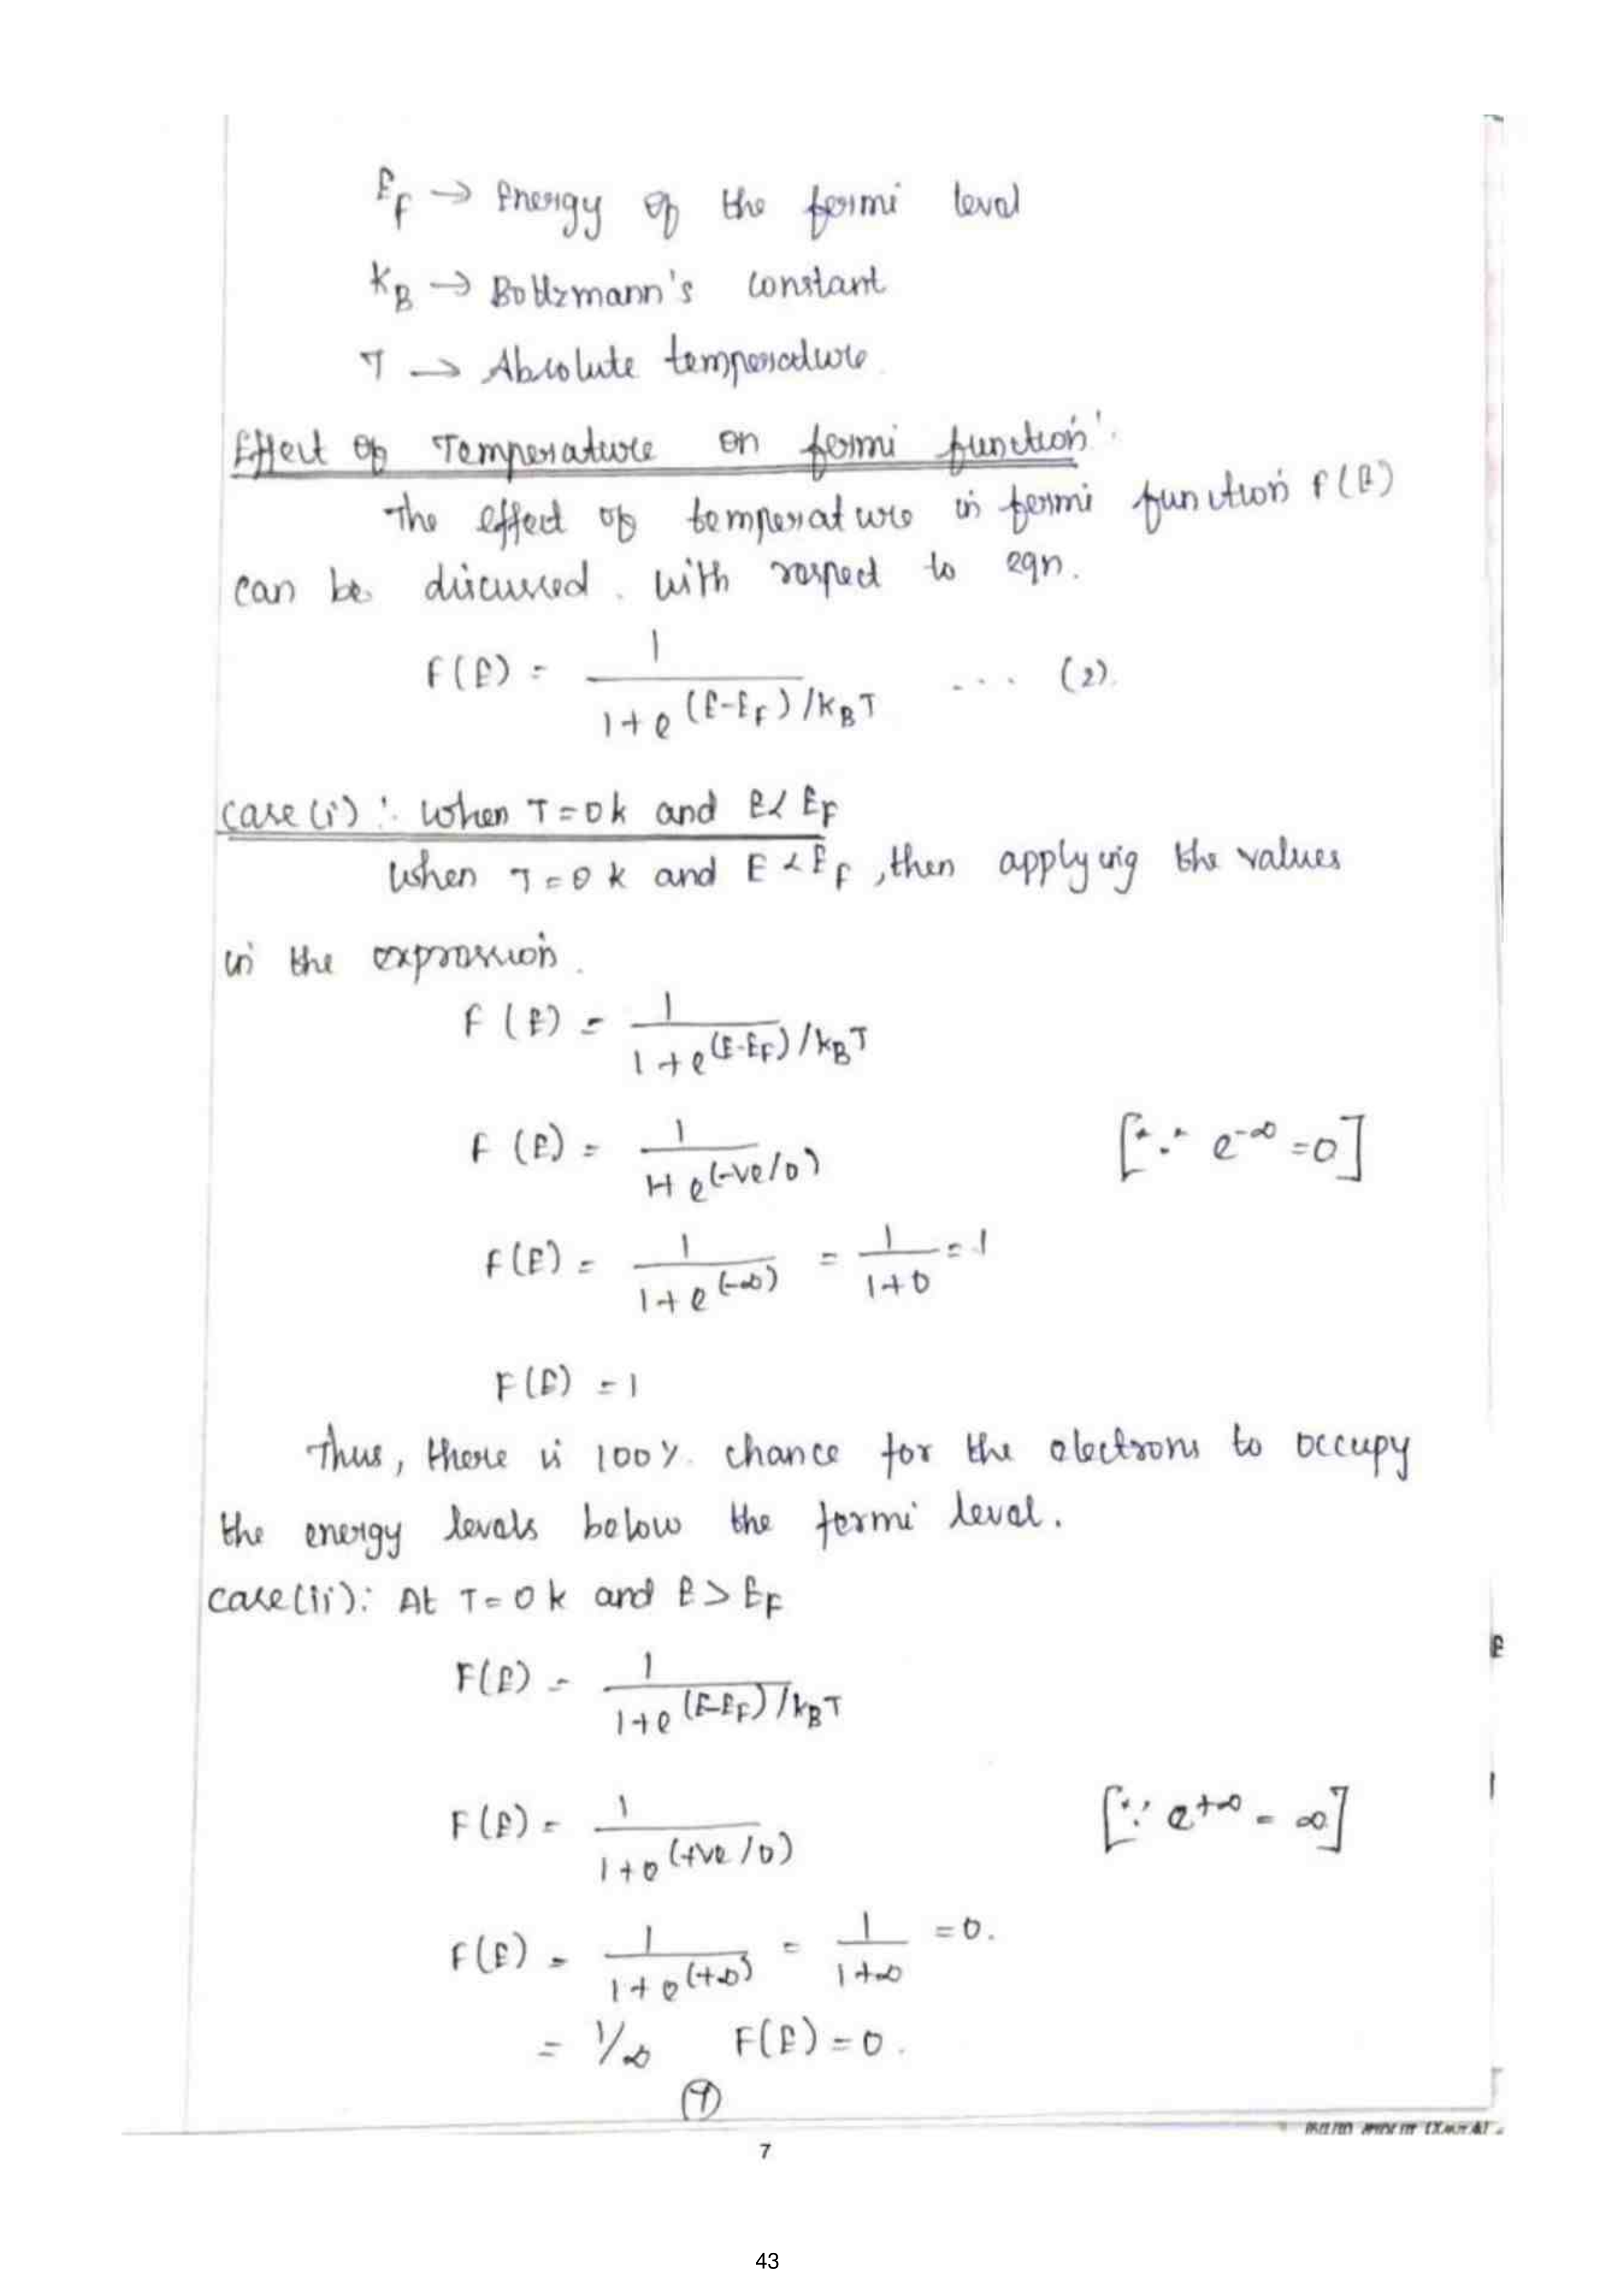 E_F → Energy of the fermi level
K_B → Boltzmann's constant
T → Absolute temperature
Effect of Temperature on fermi function:
The effect of temperature in fermi function F(E)
can be discussed. with respect to eqn.
F(E) = 1 / 1+e^(E-E_F)/K_BT ... (2).
case(i): When T=0k and E<E_F
When T=0k and E<E_F, then applying the values
in the expression.
F(E) = 1 / 1+e^(E-E_F)/K_BT
F(E) = 1 / 1+e^(-ve/0) [∵ e^-∞ =0]
F(E) = 1 / 1+e^(-∞) = 1 / 1+0 = 1
F(E) = 1
Thus, there is 100% chance for the electrons to occupy
the energy levels below the fermi level.
case(ii): At T=0k and E>E_F
F(E) = 1 / 1+e^(E-E_F)/k_BT
F(E) = 1 / 1+e^(+ve/0) [∵ e^+∞ = ∞]
F(E) = 1 / 1+e^(+∞) = 1 / 1+∞ = 0.
= 1/∞ F(E) = 0.
7
43